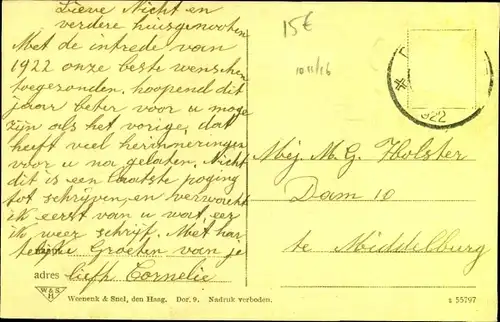 Lieve Nicht en
verdere huisgenooten
Met de intrede van
1922 onze beste wenschen
toegezonden, hoopend dit
jaar beter voor u moge
zijn als het vorige, dat
heeft veel herinneringen
voor u na gelaten. Nicht
dit is een laatste poging
tot schrijven, en verwacht
ik eerst van u wat, eer
ik weer schrijf. Met har
telijke Groeten van je
adres liefh Cornelie
15€
10 11/16
922
Mej. M. G. Holster
Dam 10
te Middelburg
W&S
H
Weenenk & Snel, den Haag. Dor. 9. Nadruk verboden.
s 55797